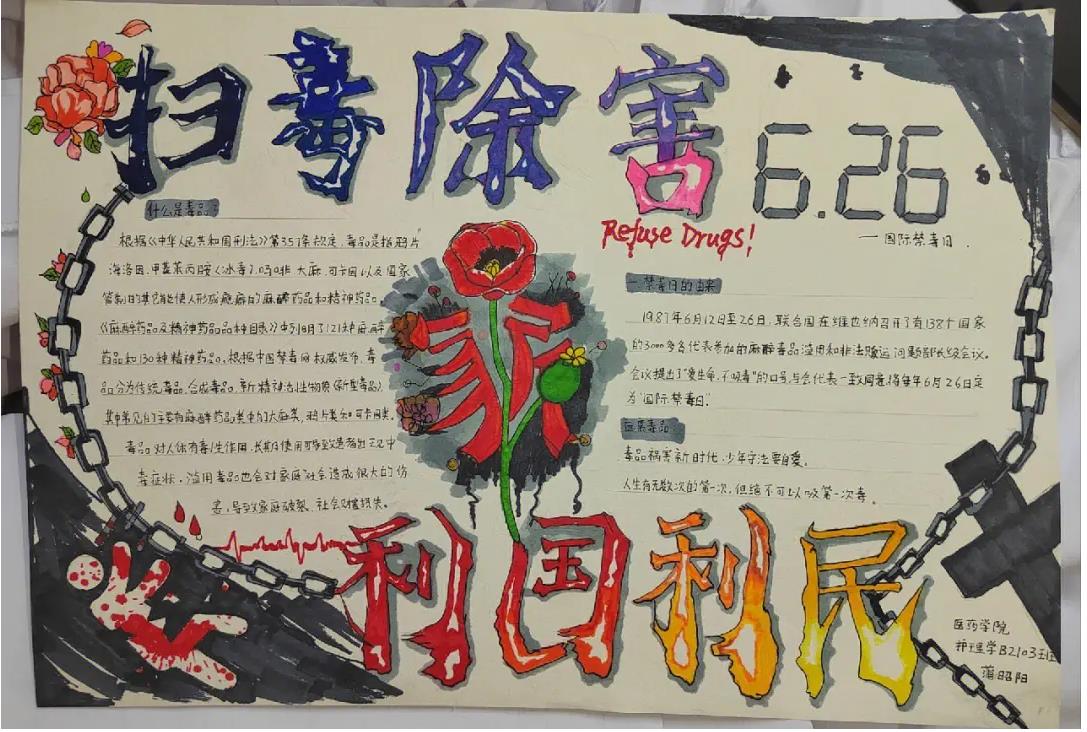 扫毒除害
6.26
一国际禁毒日.
Refuse Drugs!
什么是毒品?
根据《中华人民共和国刑法》第357条规定,毒品是指鸦片
海洛因.甲基苯丙胺(冰毒).吗啡.大麻.可卡因以及国家
管制的其它能使人形成瘾癖的麻醉药品和精神药品。
《麻醉药品及精神药品品种目录》中列明了121种麻醉
药品和130种精神药品。根据中国禁毒网权威发布,毒
品分为传统毒品.合成毒品.新精神活性物质(新型毒品).
其中常见的主要为麻醉药品类中的大麻类,鸦片类和可卡因类。
毒品对人体有毒性作用.长期使用可导致患者出现中
毒症状.滥用毒品也会对家庭社会造成很大的伤
害,导致家庭破裂、社会财糟损失。
一禁毒日的由来
1987年6月12日至26日,联合国在维也纳召开了有138个国家
的3000多名代表参加的麻醉毒品滥用和非法贩运问题部长级会议。
会议提出了"爱生命,不吸毒"的口号,与会代表一致同意,将每年6月26日定
为"国际禁毒日".
远离毒品
毒品祸害新时代.少年守法要自爱。
人生有无数次的第一次,但绝不可以吸第一次毒。
利国利民
医药学院
护理学B2103班
蒲昭阳